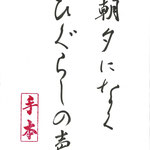 朝夕になく
ひぐらしの声
手本